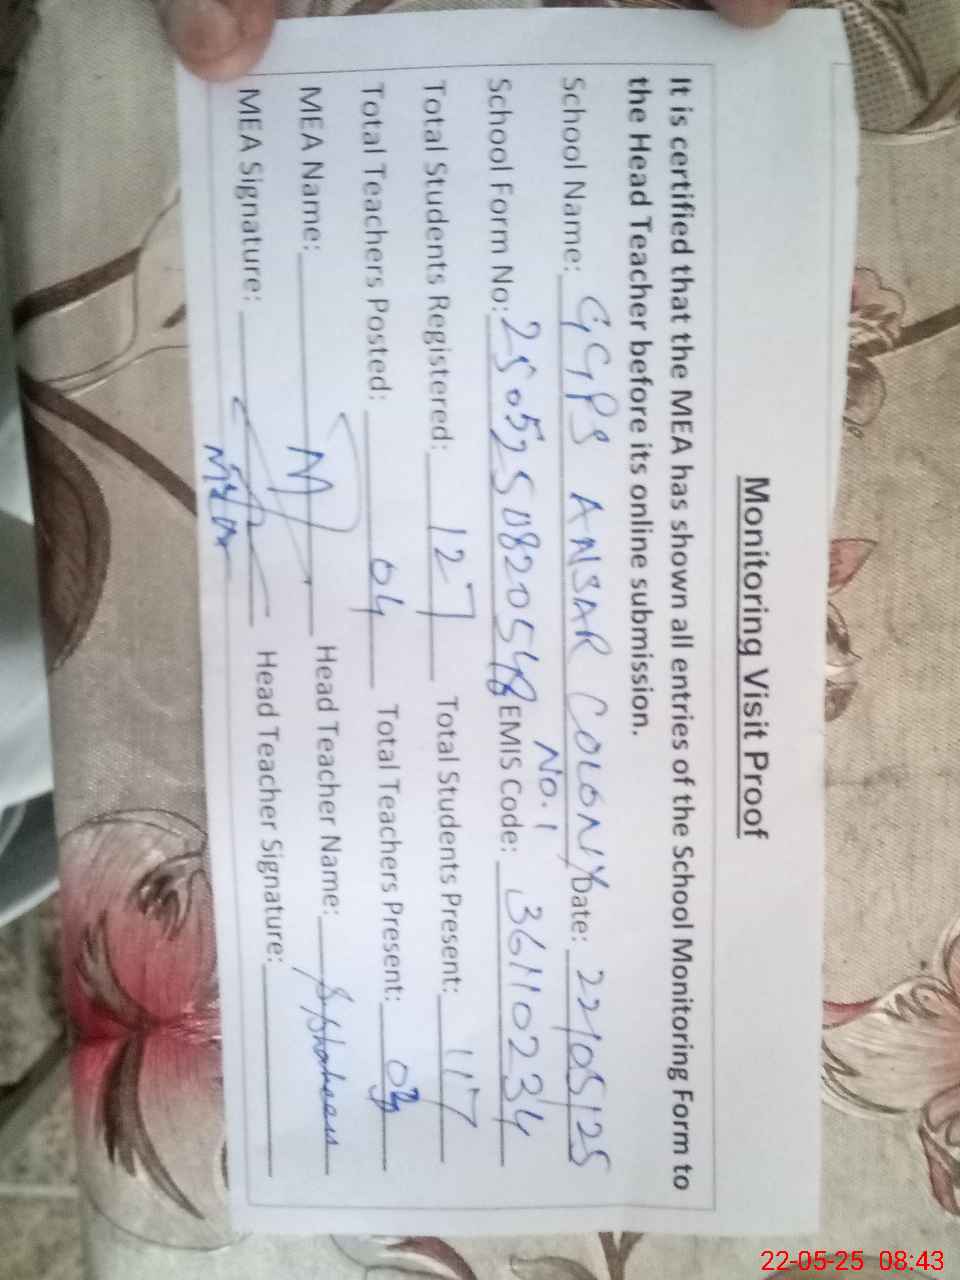 Monitoring Visit Proof
It is certified that the MEA has shown all entries of the School Monitoring Form to
the Head Teacher before its online submission.
School Name: GGPS ANSAR COLONY Date: 22/05/25
No.1
School Form No: 2505250820548 EMIS Code: 36110234
Total Students Registered: 127 Total Students Present: 117
Total Teachers Posted: 04 Total Teachers Present:
MEA Name: Head Teacher Name:
MEA Signature: Head Teacher Signature:
22-05-25 08:43